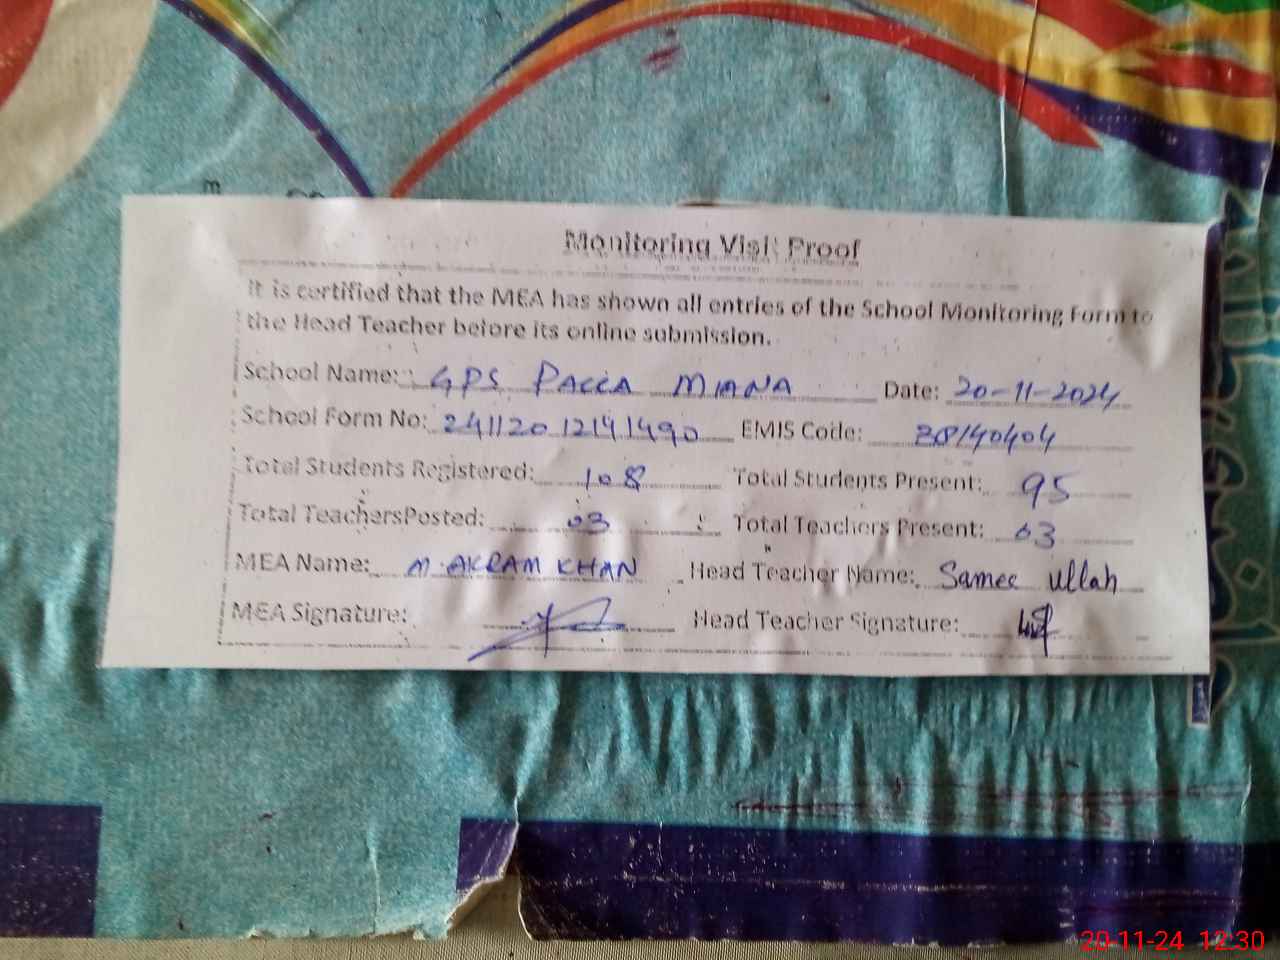 Monitoring Visit Proof
It is certified that the MEA has shown all entries of the School Monitoring Form to
the Head Teacher before its online submission.
School Name: GPS PACCA MIANA Date: 20-11-2024
School Form No: 241120 12141490 EMIS Code: 38140404
Total Students Registered: 108 Total Students Present: 95
Total TeachersPosted: 03 Total Teachers Present: 03
MEA Name: M. AKRAM KHAN Head Teacher Name: Samee Ullah
MEA Signature: Head Teacher Signature:
20-11-24 12:30